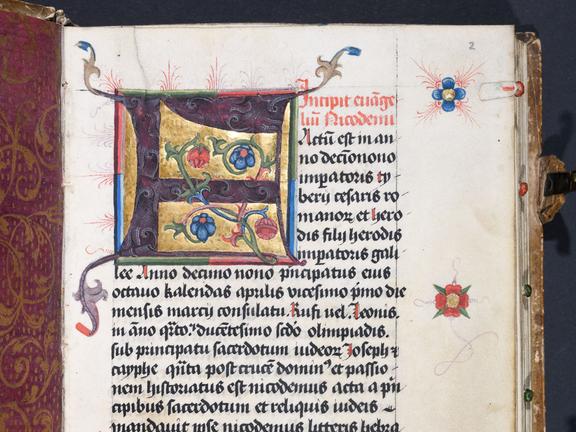 2
Incipit euāge
liū Nicodemi
Actū est in an
no decīonono
impatoris ty
berij cesaris ro
manoꝝ et hero
dis filij herodis
impatoris gali
lee Anno decimo nono pncipatus eius
octauo kalendas aprilis vicesimo pͥmo die
mensis marcij consulatu Rufi uel Leonis.
in āno qͬto ducētesimo scd̄o olimpiadis.
sub principatu sacerdotum iudeoꝝ Joseph ⁊
cayphe qͣnta post crucē dominꝰ et passio
nem historiatus est nicodemus acta a pn
cipibus sacerdotum et reliquis iudeis
mandauit ipse nicodemus litteris hebra